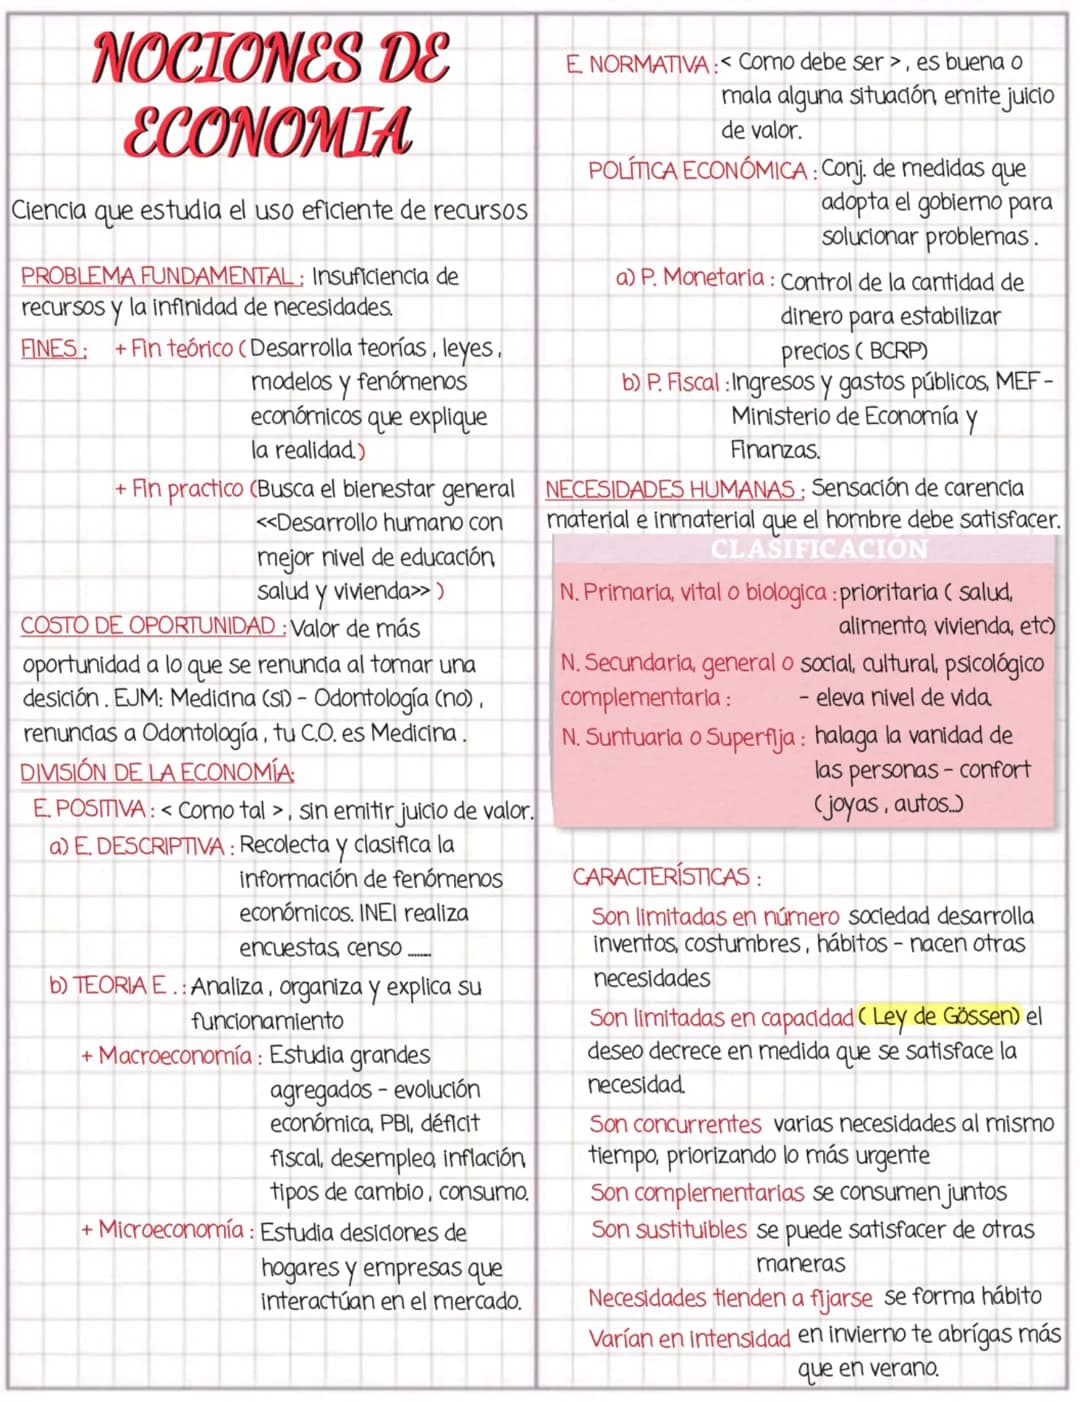 NOCIONES DE
ECONOMIA
Ciencia que estudia el uso eficiente de recursos
PROBLEMA FUNDAMENTAL : Insuficiencia de
recursos y la infinidad de necesidades.
FINES : + Fin teórico ( Desarrolla teorías , leyes ,
modelos y fenómenos
económicos que explique
la realidad.)
+ Fin practico (Busca el bienestar general
<<Desarrollo humano con
mejor nivel de educación,
salud y vivienda>> )
COSTO DE OPORTUNIDAD : Valor de más
oportunidad a lo que se renuncia al tomar una
desición . EJM: Medicina (si) - Odontología (no) ,
renuncias a Odontología , tu C.O. es Medicina .
DIVISIÓN DE LA ECONOMÍA:
E. POSITIVA : < Como tal > , sin emitir juicio de valor.
a) E. DESCRIPTIVA : Recolecta y clasifica la
información de fenómenos
económicos. INEI realiza
encuestas, censo .......
b) TEORIA E . : Analiza , organiza y explica su
funcionamiento
+ Macroeconomía : Estudia grandes
agregados - evolución
económica, PBI, déficit
fiscal, desempleo, inflación,
tipos de cambio , consumo.
+ Microeconomía : Estudia desiciones de
hogares y empresas que
interactúan en el mercado.
E. NORMATIVA : < Como debe ser > , es buena o
mala alguna situación, emite juicio
de valor.
POLÍTICA ECONÓMICA : Conj. de medidas que
adopta el gobierno para
solucionar problemas .
a) P. Monetaria : Control de la cantidad de
dinero para estabilizar
precios ( BCRP)
b) P. Fiscal : Ingresos y gastos públicos, MEF -
Ministerio de Economía y
Finanzas.
NECESIDADES HUMANAS : Sensación de carencia
material e inmaterial que el hombre debe satisfacer.
CLASIFICACIÓN
N. Primaria, vital o biologica : prioritaria ( salud,
alimento, vivienda, etc)
N. Secundaria, general o social, cultural, psicológico
complementaria : - eleva nivel de vida.
N. Suntuaria o Superfija : halaga la vanidad de
las personas - confort
( joyas , autos...)
CARACTERÍSTICAS :
Son limitadas en número sociedad desarrolla
inventos, costumbres , hábitos - nacen otras
necesidades
Son limitadas en capacidad ( Ley de Gössen) el
deseo decrece en medida que se satisface la
necesidad.
Son concurrentes varias necesidades al mismo
tiempo, priorizando lo más urgente
Son complementarias se consumen juntos
Son sustituibles se puede satisfacer de otras
maneras
Necesidades tienden a fijarse se forma hábito
Varían en intensidad en invierno te abrígas más
que en verano.